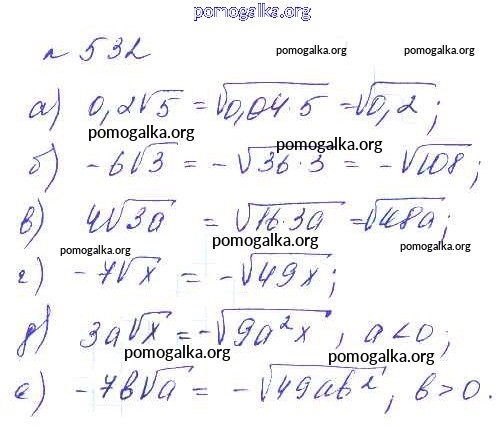 pomogalka.org
n 532
pomogalka.org pomogalka.org
а) 0,2√5 = √0,04·5 = √0,2;
pomogalka.org pomogalka.org
б) -6√3 = -√36·3 = -√108;
в) 4√3a = √16·3a = √48a;
pomogalka.org pomogalka.org pomogalka.org
г) -7√x = -√49x;
д) 3a√x = -√9a²x, a<0;
pomogalka.org pomogalka.org
е) -7b√a = -√49ab², b>0.
pomogalka.org